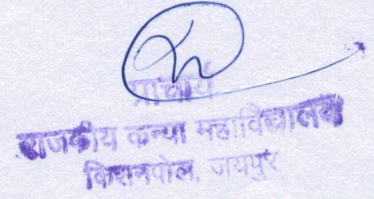 प्राचार्य
राजकीय कन्या महाविद्यालय
किशनपोल, जयपुर